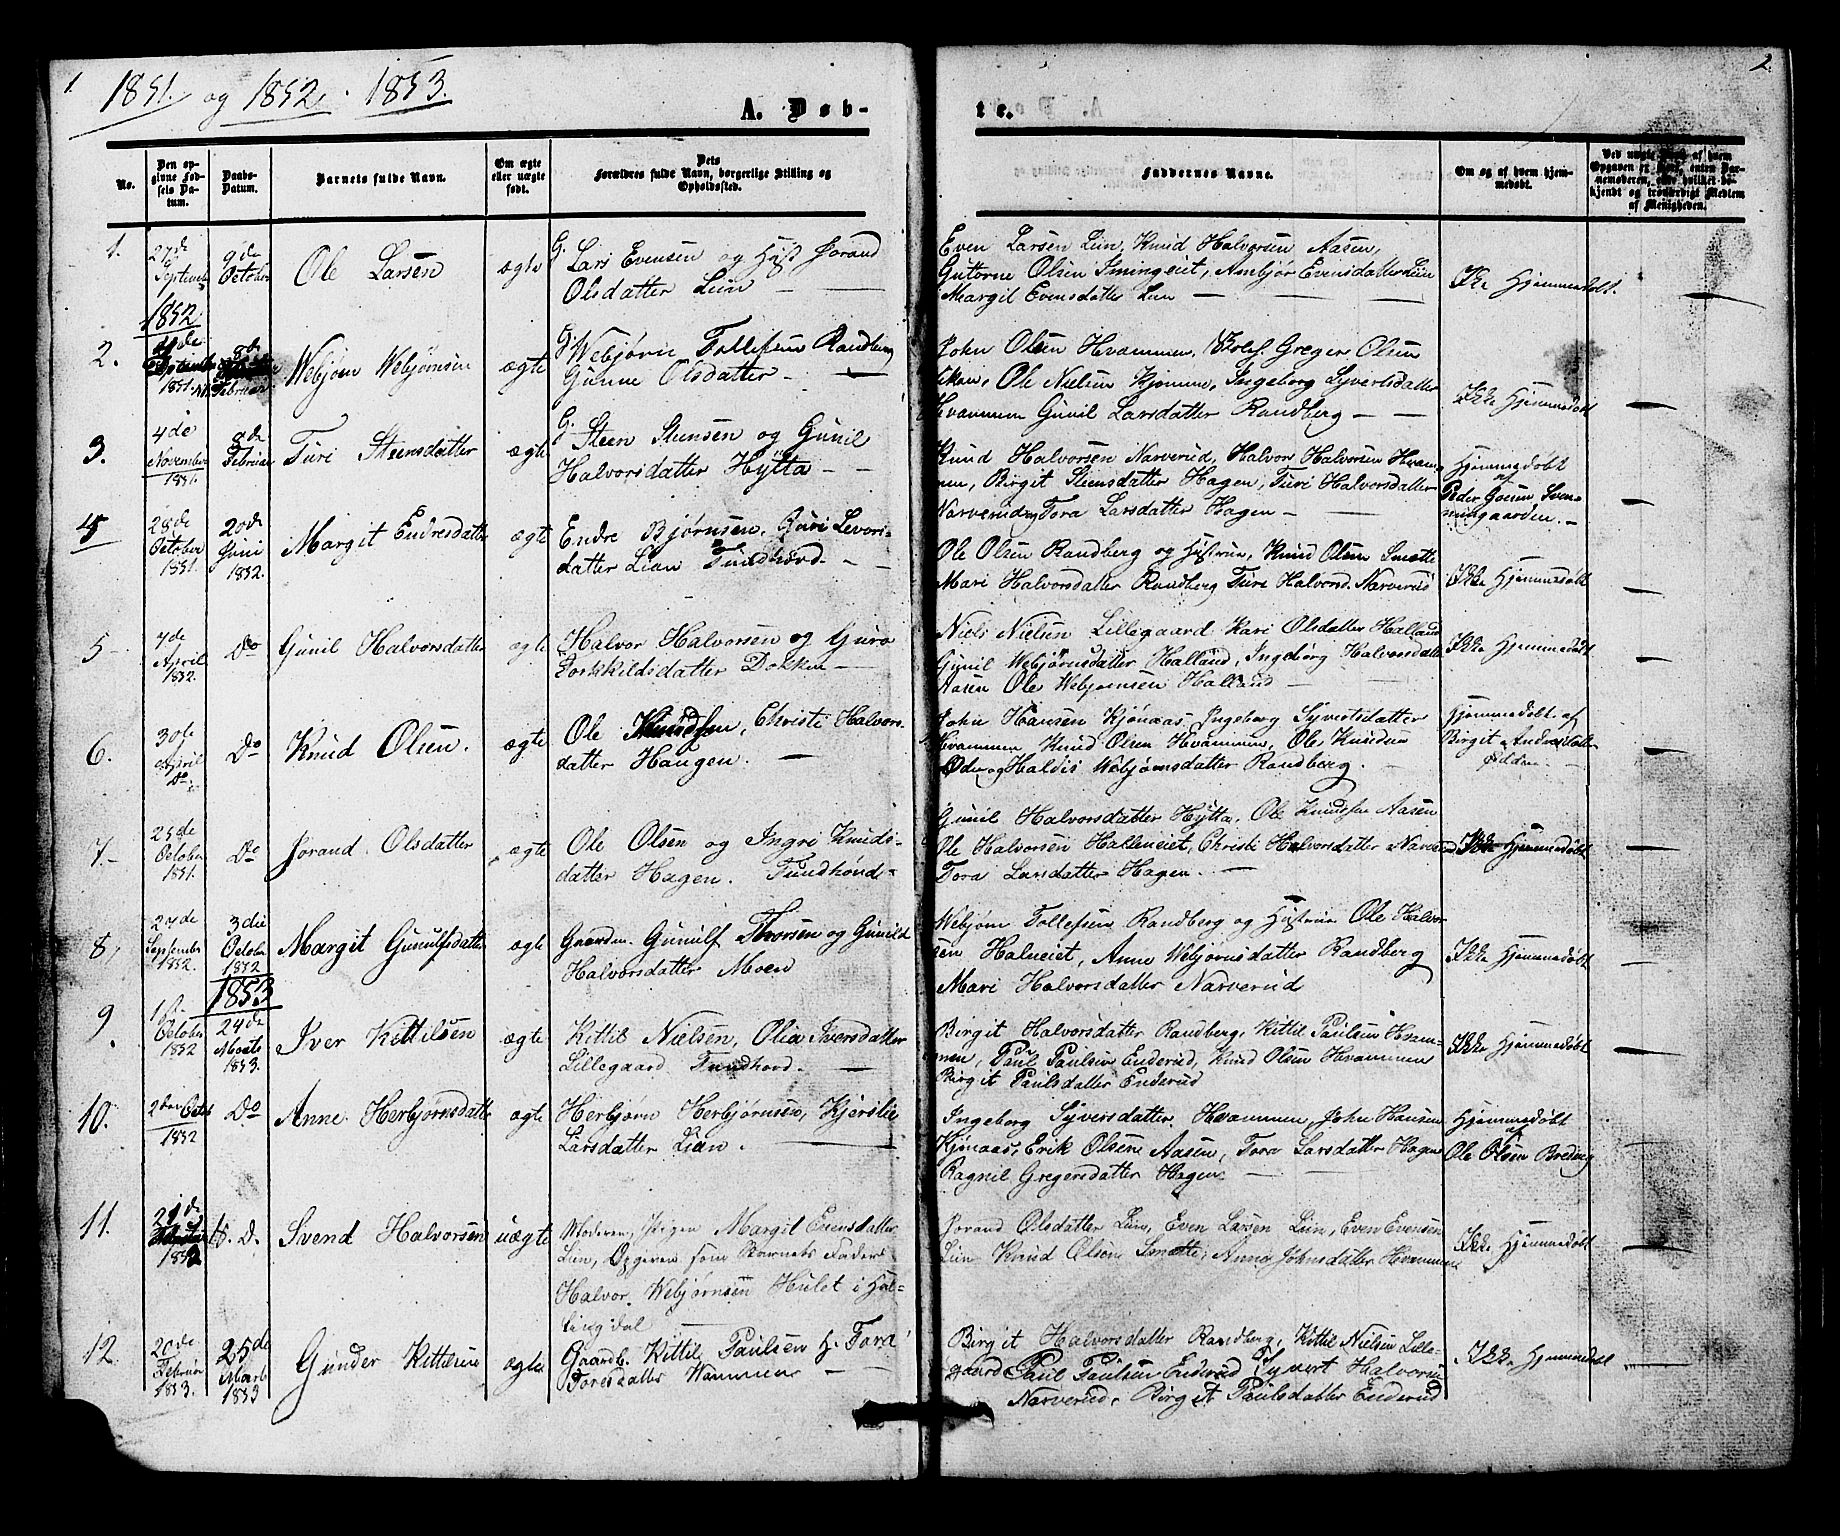 1.
1851. og 1852. 1853.
2.
A. Døb-
te.
No.
Den op-
givne Fød-
sels Da-
tum.
Daabs-
Datum.
Barnets fulde Navn.
Om ægte
eller uægte
født.
Dets
Forældres fulde Navn, borgerlige Stilling og
Opholdssted.
Faddernes Navne.
Om og af hvem hjem-
medøbt.
1.
27de
Septemb
9de
October
Ole Larsen
ægte
G. Lars Evensen og Hust Jorand
Olsdatter Lien
Even Larsen Lien, Knud Halvorsen Aasen,
Guttorm Olsen Imingeiet, Ambjør Evensdatter Lien
Margit Evensdatter Lien
Ikke Hjemmedøbt.
1852
2.
4de
1851.
8de
Februar
Webjørn Webjørnsen
ægte
G. Webjørn Tollefsen Randberg
Gunne Olsdatter
John Olsen Hvammen, Greger Olsen
Ole Nielsen Kjønnne, Ingeborg Syvertsdatter
Hvammen Gunil Larsdatter Randberg
Ikke Hjemmedøbt
3.
4de
November
1851.
8de
Februar
Turi Steensdatter
ægte
G. Steen Steensen og Gunil
Halvorsdatter Hytta
Knud Halvorsen Narverud, Halvor Halvorsen Hvam-
men, Birgit Steensdatter Hagen, Turi Halvorsdatter
Narverud og Tora Larsdatter Hagen
Hjemmedøbt
af
Peder Goesen Sven-
nungaarden.
4
28de
October
1851.
20de
Juni
1852.
Margit Endresdatter
ægte
Endre Bjørnsen, Guri Levors-
datter Lian Tundhovd.
Ole Olsen Randberg og Hustrue, Knud Olsen Smætte
Mari Halvorsdatter Randberg Turi Halvorsd. Narverud
Ikke Hjemmedøbt
5
7de
April
1852.
Do
Gunil Halvorsdatter
ægte
Halvor Halvorsen og Guro
Torkildsdatter Dokken
Niels Nielsen Lillegaard Kari Olsdatter Halland
Gunil Webjørnsdatter Halland, Ingeborg Halvorsdatter
Aasen Ole Webjørnsen Halland
Ikke Hjemmedøbt
6.
30de
April
Do
Do
Knud Olsen.
ægte
Ole Knudsen, Christi Halvors-
datter Haugen.
John Hansen Kjønaas, Ingeborg Syvertsdatter
Hvammen Knud Olsen Hvammen, Ole Knudsen
og Haldis Webjørnsdatter Randberg.
Hjemmedøbt af
Birgit Andersdatter
7.
25de
October
1851.
Do
Jorand Olsdatter
ægte
Ole Olsen og Ingri Knuds-
datter Hagen. Tundhovd
Gunil Halvorsdatter Hytta, Ole Knudsen Aasen
Ole Halvorsen Halleneiet, Christi Halvorsdatter Narverud
Tora Larsdatter Hagen.
Ikke Hjemmedøbt
8,
27de
September
1852.
3die
October
1852
Margit Gunulfsdatter
ægte
Gaardm. Gunulf Thorsen og Gunild
Halvorsdatter Moen
Webjørn Tollefsen Randberg og Hustrue Ole Halvor-
sen Halneiet, Anne Webjørnsdatter Randberg
Mari Halvorsdatter Narverud
Ikke Hjemmedøbt
1853
9.
1st
October
1852
24de
Marts
1853.
Iver Kittilsen
ægte
Kittil Nielsen, Olia Iversdatter
Lillegaard Tundhovd.
Birgit Halvorsdatter Randberg, Kittil Paulsen Hvam-
men, Paul Paulsen Enderud, Knud Olsen Hvammen
Birgit Paulsdatter Enderud
Ikke Hjemmedøbt
10.
2den Octob
1852
Do
Anne Herbjørnsdatter
ægte
Herbjørn Herbjørnsen, Kjerstie
Larsdatter Lian.
Ingeborg Syversdatter Hvammen, John Hansen
Kjønaas, Erik Olsen Aasen, Tora Larsdatter Hagen
Ragnil Gregersdatter Hagen
Hjemmedøbt
af
Ole Olsen Breding
11.
21de
1852
D.
Svend Halvorsen
uægte
Moderen, Pigen Margit Evensdatter
Lien, Opgiven som Barnets Fader
Halvor Webjørnsen Hulet i Hal-
lingdal
Jorand Olsdatter Lien, Even Larsen Lien, Even Evensen
Lien Knud Olsen Smætte, Anne Johnsdatter Hvammen
Ikke Hjemmedøbt
12
20de
Februar
1853.
25de
Marts
1853
Gunder Kittilsen
ægte
Gaardb. Kittil Paulsen H. Tora
Toresdatter Wammen
Birgit Halvorsdatter Randberg, Kittil Nielsen Lille-
gaard Paul Paulsen Enderud Syvert Halvorsen
Narverud, Birgit Paulsdatter Enderud
Ikke Hjemmedøbt